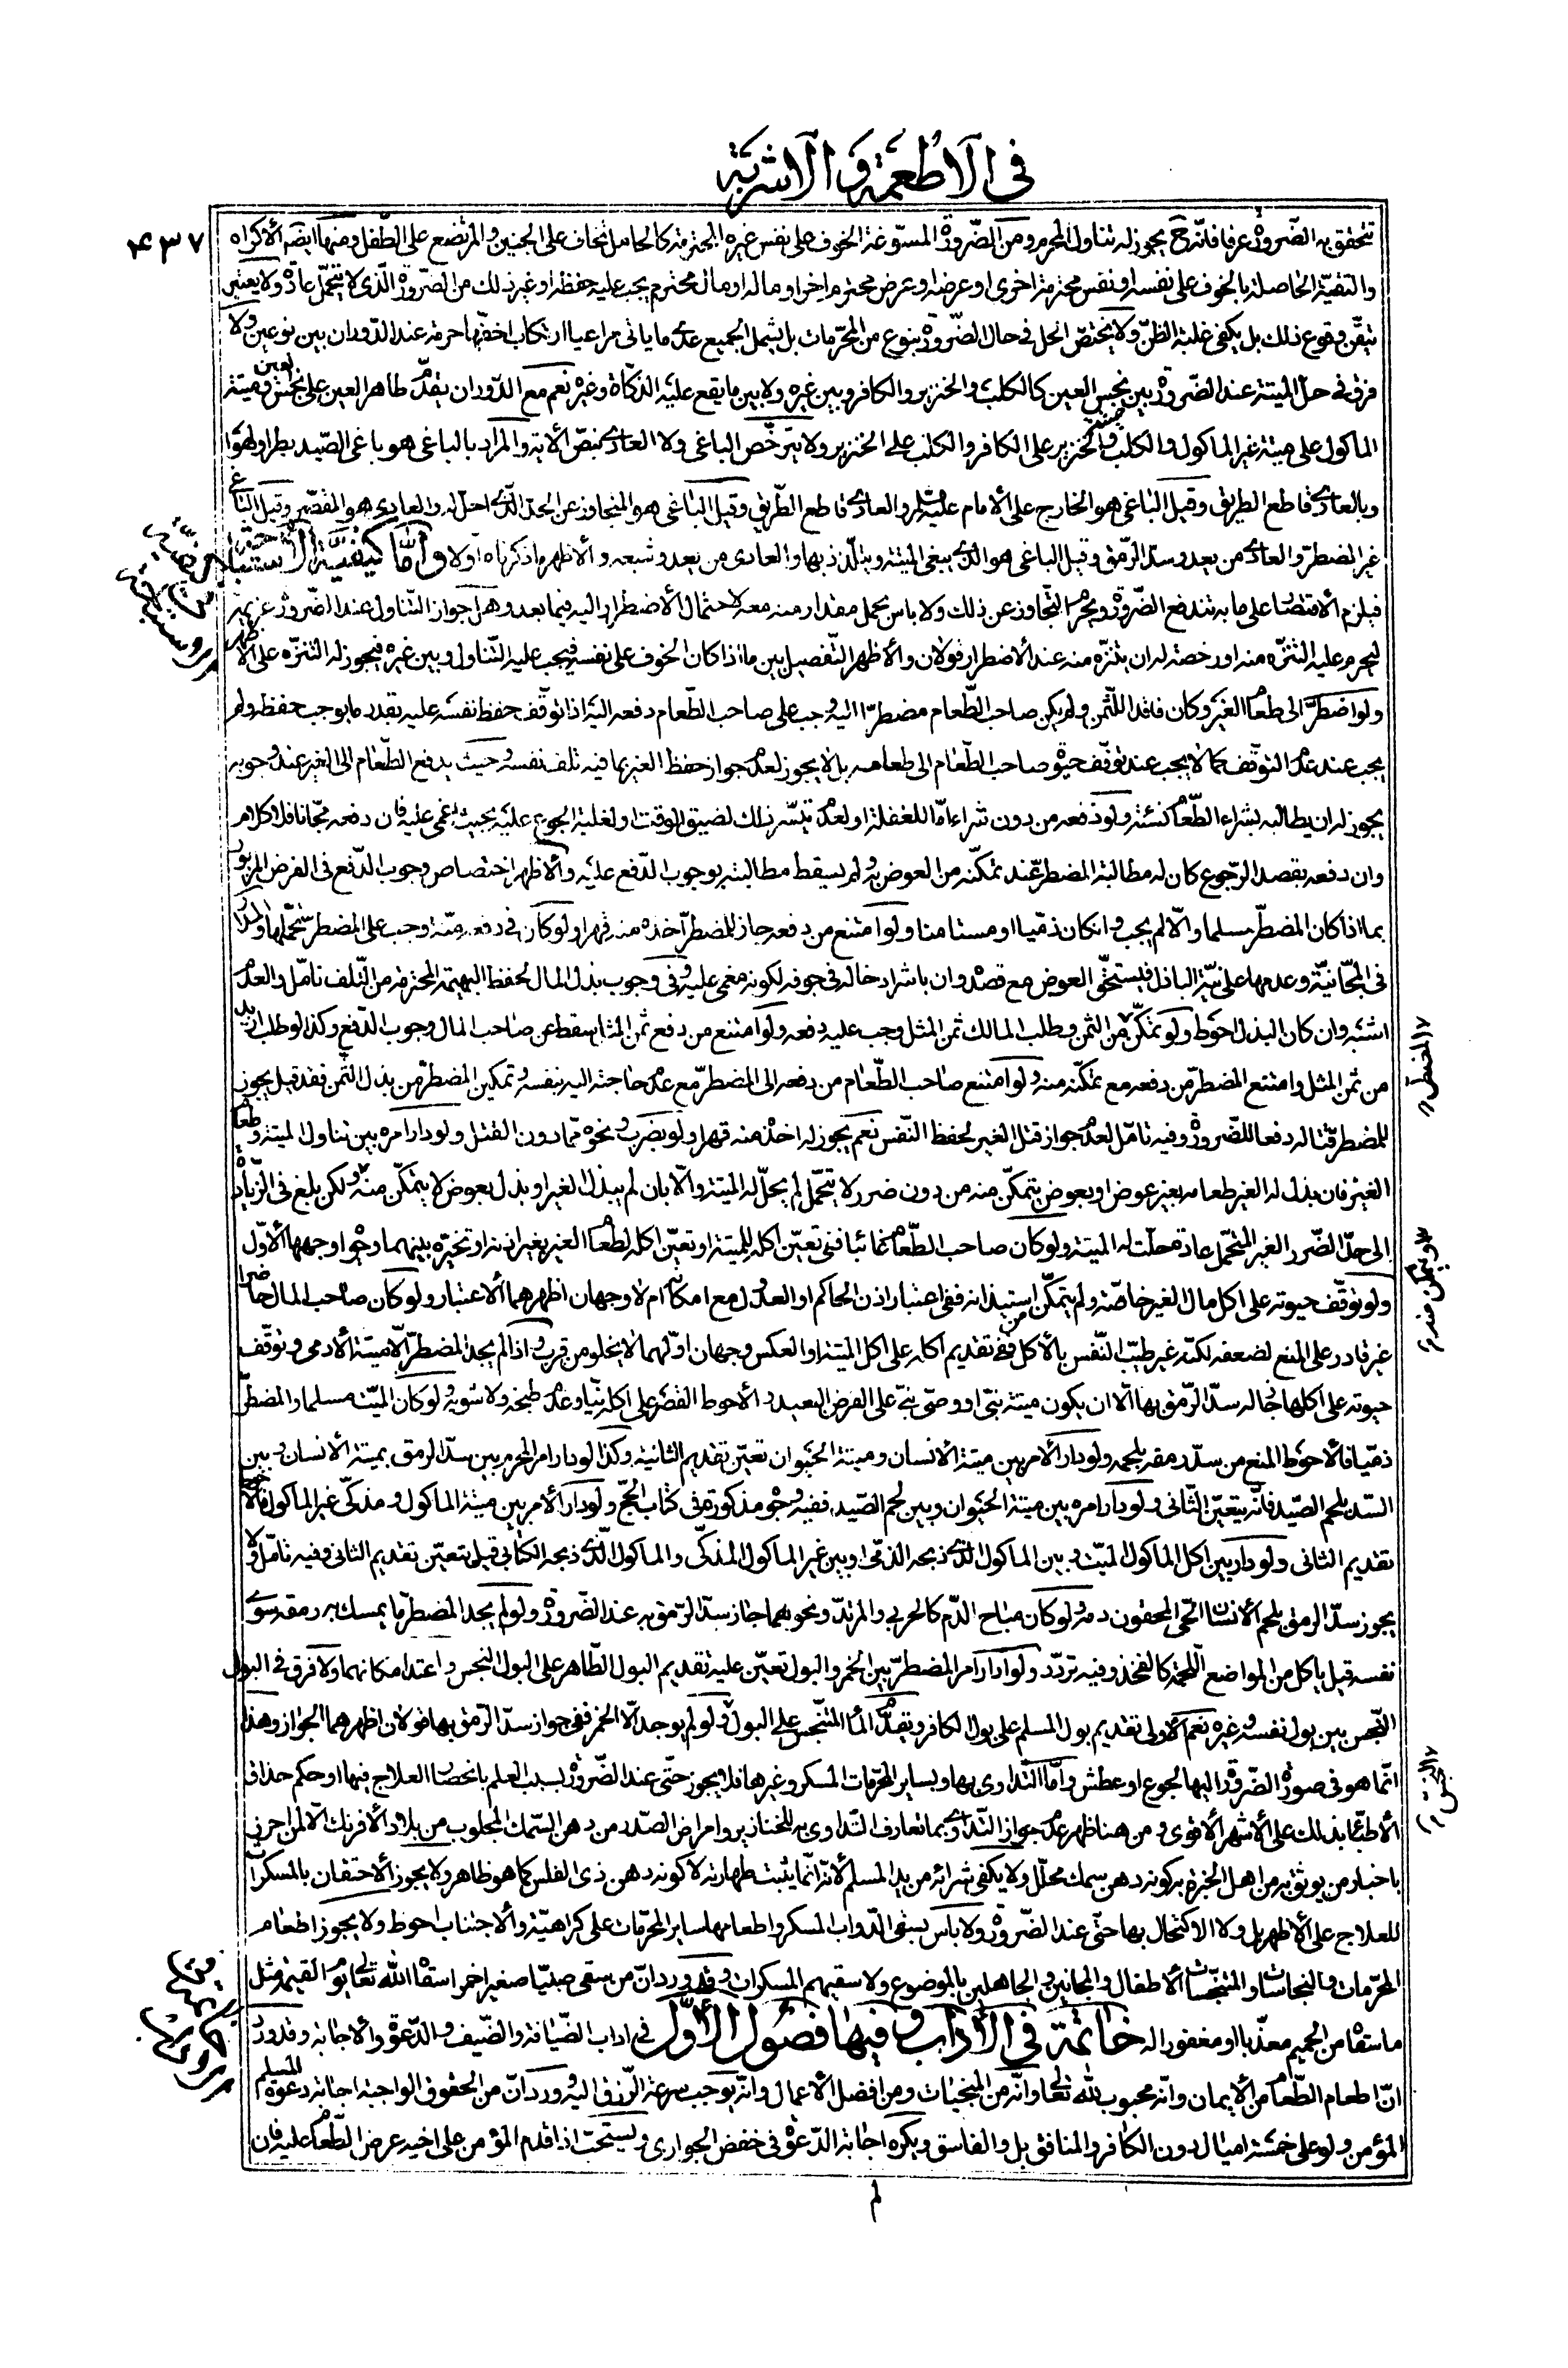 في الأطعمة والأشربة
٤٣٧
تتحقق به الضرورة عرفا فانه ح يجوز له تناول المحرم ومن الضرورة المسوغة الخوف على نفس غيره المحترمة كالحامل تخاف على الجنين والمرضع على الطفل ومنها ايضا الأكراه
والتقية الحاصلة بالخوف على نفسه او نفس محترمة اخرى او عرضه او عرض محترم اخر او ماله او مال محترم يجب عليه حفظه او غير ذلك من الضرورة الذى لا يتحمل عادة ولا يعتبر
تيقن وقوع ذلك بل يكفى غلبة الظن ولا يختص الحل في حال الضرورة بنوع من المحرمات بل يشمل الجميع على ما ياتى مراعيا ارتكاب اخفها حرمة عند الدوران بين نوعين ولا
فرق في حل الميتة عند الضرورة بين نجس العين كالكلب والخنزير والكافر وبين غيره ولا بين ما يقع عليه الذكاة وغيره نعم مع الدوران يقدم طاهر العين على نجس العين وميتة
الماكول على ميتة غير الماكول والكلب والخنزير على الكافر والكلب على الخنزير ولا يترخص الباغى ولا العادى بنص الاية والمراد بالباغى هو باغى الصيد بطرا ولهوا
وبالعادى قاطع الطريق وقيل الباغى هو الخارج على الأمام عليه السلام والعادى قاطع الطريق وقيل الباغى هو المتجاوز عن الحد الذى احل له والعادى هو المقصر وقيل الباغى
غير المضطر والعادى من يعدو سد الرمق وقيل الباغى هو الذى يبغى الميتة ويتلذذ بها والعادى من يعدو شبعه والأظهر ما ذكرناه اولا وأما كيفية الأستباحة
فيلزم الأقتصار على ما به تندفع الضرورة ويحرم التجاوز عن ذلك ولا باس بحمل مقدار منه معه لاحتمال الأضطرار اليه فيما بعد وهل جواز التناول عند الضرورة عزيمة
ليحرم عليه التنزه منه او رخصة له ان يتنزه منه عند الأضطرار قولان والأظهر التفصيل بين ما اذا كان الخوف على نفسه فيجب عليه التناول وبين غيره فيجوز له التنزه على الأظهر
ولو اضطر الى طعام الغير وكان فاقدا للثمن ولم يكن صاحب الطعام مضطرا اليه وجب على صاحب الطعام دفعه اليه اذا توقف حفظ نفسه عليه بقدر ما يوجب حفظه ولم
يجب عند عدم التوقف كما لا يجب عند توقف حيوة صاحب الطعام الى طعامه بل لا يجوز لعدم جواز حفظ الغير بما فيه تلف نفسه وحيث يدفع الطعام الى الغير عند وجوبه
يجوز له ان يطالبه بشراء الطعام نسئة ولو دفعه من دون شراء اما للغفلة او لعدم تيسر ذلك لضيق الوقت او لغلبة الجوع عليه بحيث اغمى عليه فان دفعه مجانا فلا كلام
وان دفعه بقصد الرجوع كان له مطالبة المضطر عند تمكنه من العوض به ولم يسقط مطالبته بوجوب الدفع عليه والأظهر اختصاص وجوب الدفع في الفرض المزبور
بما اذا كان المضطر مسلما والا لم يجب وان كان ذميا او مستامنا ولو امتنع من دفعه جاز للمضطر اخذه منه قهرا ولو كان في دفعه منة وجب على المضطر تحملها والمدار
في المجانية وعدمها على نية الباذل فيستحق العوض مع قصده وان باشر ادخاله في جوفه لكونه مغمى عليه وفي وجوب بذل المال لحفظ البهيمة المحترمة من التلف تامل والعدم
اشبه وان كان البذل احوط ولو تمكن من الثمن وطلب المالك ثمن المثل وجب عليه دفعه ولو امتنع من دفع ثمن المثل سقط عن صاحب المال وجوب الدفع وكذا لو طلب ازيد
من ثمن المثل وامتنع المضطر من دفعه مع تمكنه منه ولو امتنع صاحب الطعام من دفعه الى المضطر مع عدم حاجته اليه بنفسه وتمكين المضطر من بذل الثمن فقد قيل يجوز
للمضطر قتاله دفعا للضرورة وفيه تامل لعدم جواز قتل الغير لحفظ النفس نعم يجوز له اخذه منه قهرا ولو بضرب ونحوه مما دون القتل ولو دار امره بين تناول الميتة وطعام
الغير فان بذل له الغير طعامه بغير عوض او بعوض يتمكن منه من دون ضرر لا يتحمل لم يحل له الميتة والا بان لم يبذل الغير او بذل بعوض لا يتمكن منه ولكن بلغ في الزيادة
الى حد الضرر الغير المتحمل عادة حلت له الميتة ولو كان صاحب الطعام غائبا ففي تعين اكله للميتة او تعين اكله لطعام الغير بغير اذنه او تخيره بينهما وجوه اوجهها الأول
ولو توقف حيوته على اكل مال الغير خاصة ولم يتمكن استيذانه ففى اعتبار اذن الحاكم او العدول مع امكانه ام لا وجهان اظهرهما الأعتبار ولو كان صاحب المال حاضرا
غير قادر على المنع لضعفه لكنه غير طيب النفس بالأكل ففي تقديم اكله على اكل الميتة او العكس وجهان اولهما لا يخلو من قرب واذا لم يجد المضطر الا ميتة الأدمى وتوقف
حيوته على اكلها جاز له سد الرمق بها الا ان يكون ميتة نبى او وصى نبى على الفرض البعيد والأحوط القصر على اكله نيا وعدم طبخه ولا شويه ولو كان الميت مسلما والمضطر
ذميا فالأحوط المنع من سد رمقه بلحمه ولو دار الأمر بين ميتة الأنسان وميتة الحيوان تعين تقديم الثانية وكذا لو دار امر المحرم بين سد الرمق بميتة الأنسان وبين
السد بلحم الصيد فانه يتعين الثانى ولو دار امره بين ميتة الحيوان وبين لحم الصيد ففيه وجوه مذكورة في كتاب الحج ولو دار الأمر بين ميتة الماكول ومذكى غير الماكول فالأحوط
تقديم الثانى ولو دار بين اكل الماكول الميت وبين الماكول الذى ذبحه الذمى او بين غير الماكول المذكى والماكول الذى ذبحه الكتابى قيل يتعين تقديم الثانى وفيه تامل ولا
يجوز سد الرمق بلحم الأنسان الحى المحقون دمه ولو كان مباح الدم كالحربى والمرتد ونحوهما جاز سد الرمق به عند الضرورة ولو لم يجد المضطر ما يمسك به رمقه سوى
نفسه قيل ياكل من المواضع اللحمة كالفخذ وفيه تردد ولو دار امر المضطر بين الخمر والبول تعين عليه تقديم البول الطاهر على البول النجس واعتد امكانهما ولا فرق في البول
النجس بين بول نفسه وغيره نعم الأولى تقديم بول المسلم على بول الكافر ويقدم الماء المتنجس على البول ولو لم يوجد الا الخمر ففى جواز سد الرمق بها قولان اظهرهما الجواز وهذا
انما هو في صورة الضرورة اليها لجوع او عطش واما التداوى بها وبساير المحرمات المسكر وغيرها فلا يجوز حتى عند الضرورة بسبب العلم بانحصار العلاج فيها او حكم حذاق
الأطباء بذلك على الأشهر الأقوى ومن هنا ظهر عدم جواز التداوى بما تعارف التداوى به للخنازير وامراض الصدر من دهن السمك المجلوب من بلاد الأفرنك الا لمن اخبر
باخبار من يوثق به من اهل الخبرة بكونه دهن سمك محلل ولا يكفى شرائه من يد المسلم لأنه انما يثبت طهارته لا كونه دهن ذى الفلس كما هو ظاهر ولا يجوز الأحتقان بالمسكر
للعلاج على الأظهر بل ولا الاكتحال بها حتى عند الضرورة ولا باس بسقى الدواب المسكر واطعامها ساير المحرمات على كراهية والأجتناب احوط ولا يجوز اطعام
المحرمات والنجاسات والمتنجسات الأطفال والمجانين والجاهلين بالموضوع ولا سقيهم المسكرات وقد ورد ان من سقى صبيا صغيرا خمرا سقاه الله تعالى يوم القيمة مثل
ما سقاه من الحميم معذبا او مغفورا له خاتمة في الأداب وفيها فصول الأول في اداب الضيافة والضيف والدعوة والأجابة وقد ورد
ان اطعام الطعام من الأيمان وانه محبوب لله تعالى وانه من المنجيات ومن افضل الأعمال وانه يوجب سرعة الرزق اليه وورد ان من الحقوق الواجبة اجابة دعوة المسلم
المؤمن ولو على خمسة اميال دون الكافر والمنافق بل والفاسق ويكره اجابة الدعوة في خفض الجوارى ويستحب اذا قدم المؤمن على اخيه عرض الطعام عليه فان
لم